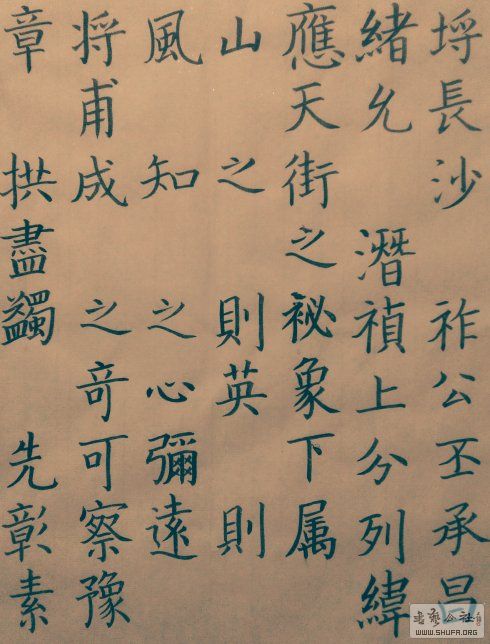 埒長沙 祚公丕承昌
緒允 潛禎上分列緯
應天街之祕象下属
山 之 則英 則
風 知 之心彌遠
将甫成 之奇可察豫
章 拱盡蠲 先彰素
WWW.SHUFA.ORG